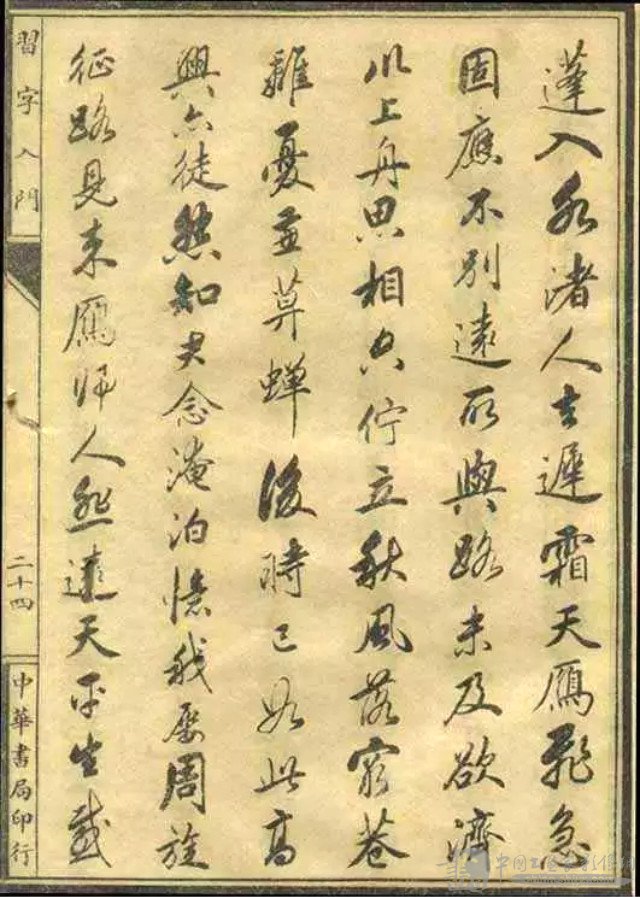 蓬入水渚人去遲霜天鴈飛急
固應不別遠所與路未及欲濟
川上舟思相空佇立秋風落窮巷
離憂兼暮蟬後時已如此高
興亦徒然知君念淹泊憶我屢周旋
征路見來鴈歸人悲遠天平生感
習字入門
二十四
中華書局印行